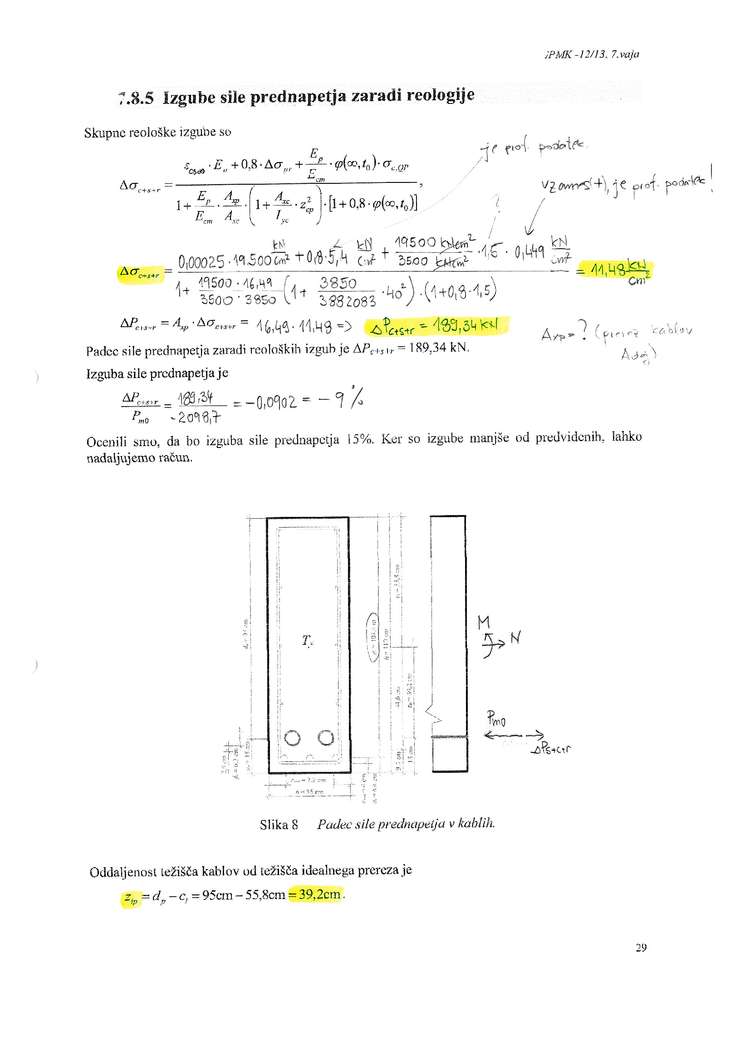 IPMK -12/13. 7.vaja
7.8.5 Izgube sile prednapetja zaradi reologije
Skupne reološke izgube so
je prof. podatek.
Δσ_{c+s+r} = (ε_{cs∞} · E_p + 0,8 · Δσ_{pr} + E_p/E_{cm} · φ(∞,t_0) · σ_{c,QP}) / (1 + E_p/E_{cm} · A_{xp}/A_{xc} · (1 + A_{xc}/I_{yc} · z_{cp}^2) · [1 + 0,8 · φ(∞,t_0)]),
vzames(+), je prof. podatek!
?
Δσ_{c+s+r} = (0,00025 · 19.500 kN/cm² + 0,8 · 5,4 kN/cm² + 19500 kN/cm² / 3500 kN/cm² · 1,5 · 0,449 kN/cm²) / (1 + 19500 · 16,49 / 3500 · 3850 (1 + 3850/3882083 · 40²) · (1+0,8·1,5)) = 11,48 kN/cm²
ΔP_{c+s+r} = A_{xp} · Δσ_{c+s+r} = 16,49 · 11,48 => ΔP_{c+s+r} = 189,34 kN
A_{xp} = ? (prerez kablov
Padec sile prednapetja zaradi reoloških izgub je ΔP_{c+s+r} = 189,34 kN.
Izguba sile prednapetja je
ΔP_{c+s+r}/P_{m0} = 189,34/-2098,7 = -0,0902 = - 9 %
Ocenili smo, da bo izguba sile prednapetja 15%. Ker so izgube manjše od predvidenih, lahko
nadaljujemo račun.
M
N
P_{m0}
ΔP_{s+c+r}
Slika 8 Padec sile prednapetja v kablih.
Oddaljenost težišča kablov od težišča idealnega prereza je
z_{ip} = d_p − c_i = 95cm − 55,8cm = 39,2cm.
29